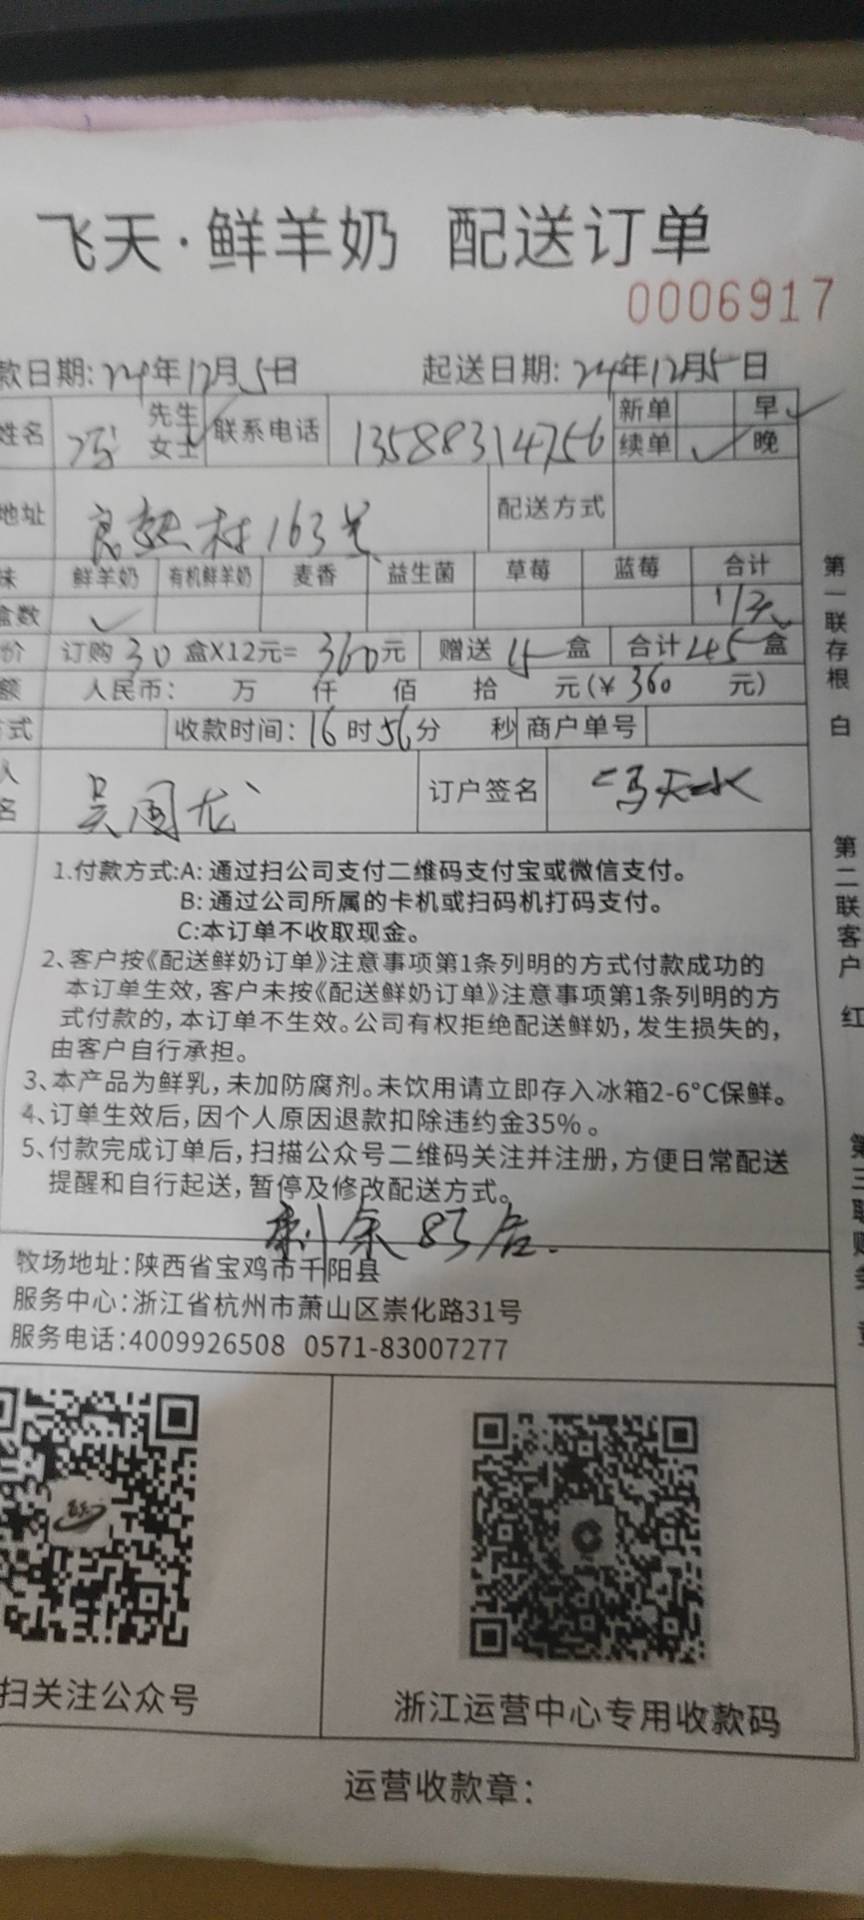 飞天·鲜羊奶 配送订单
0006917
款日期: 24年12月5日 起送日期: 24年12月5日
姓名 冯 先生 女士 联系电话 13588314756 新单 早✓
续单 ✓ 晚
地址 良熟村163号 配送方式
味 鲜羊奶 有机鲜羊奶 麦香 益生菌 草莓 蓝莓 合计
盒数 ✓ 1/天
价 订购30盒X12元=360元 赠送15盒 合计45盒
额 人民币: 万 仟 佰 拾 元(¥360元)
方式 收款时间:16时56分 秒 商户单号
人名 吴国龙 订户签名 冯天水
1.付款方式:A:通过扫公司支付二维码支付宝或微信支付。
B:通过公司所属的卡机或扫码机打码支付。
C:本订单不收取现金。
2、客户按《配送鲜奶订单》注意事项第1条列明的方式付款成功的
本订单生效,客户未按《配送鲜奶订单》注意事项第1条列明的方
式付款的,本订单不生效。公司有权拒绝配送鲜奶,发生损失的,
由客户自行承担。
3、本产品为鲜乳,未加防腐剂。未饮用请立即存入冰箱2-6°C保鲜。
4、订单生效后,因个人原因退款扣除违约金35%。
5、付款完成订单后,扫描公众号二维码关注并注册,方便日常配送
提醒和自行起送,暂停及修改配送方式。
剩余83合.
牧场地址:陕西省宝鸡市千阳县
服务中心:浙江省杭州市萧山区崇化路31号
服务电话:4009926508 0571-83007277
扫关注公众号
浙江运营中心专用收款码
运营收款章:
第一联存根 白
第二联客户 红
第三联财务